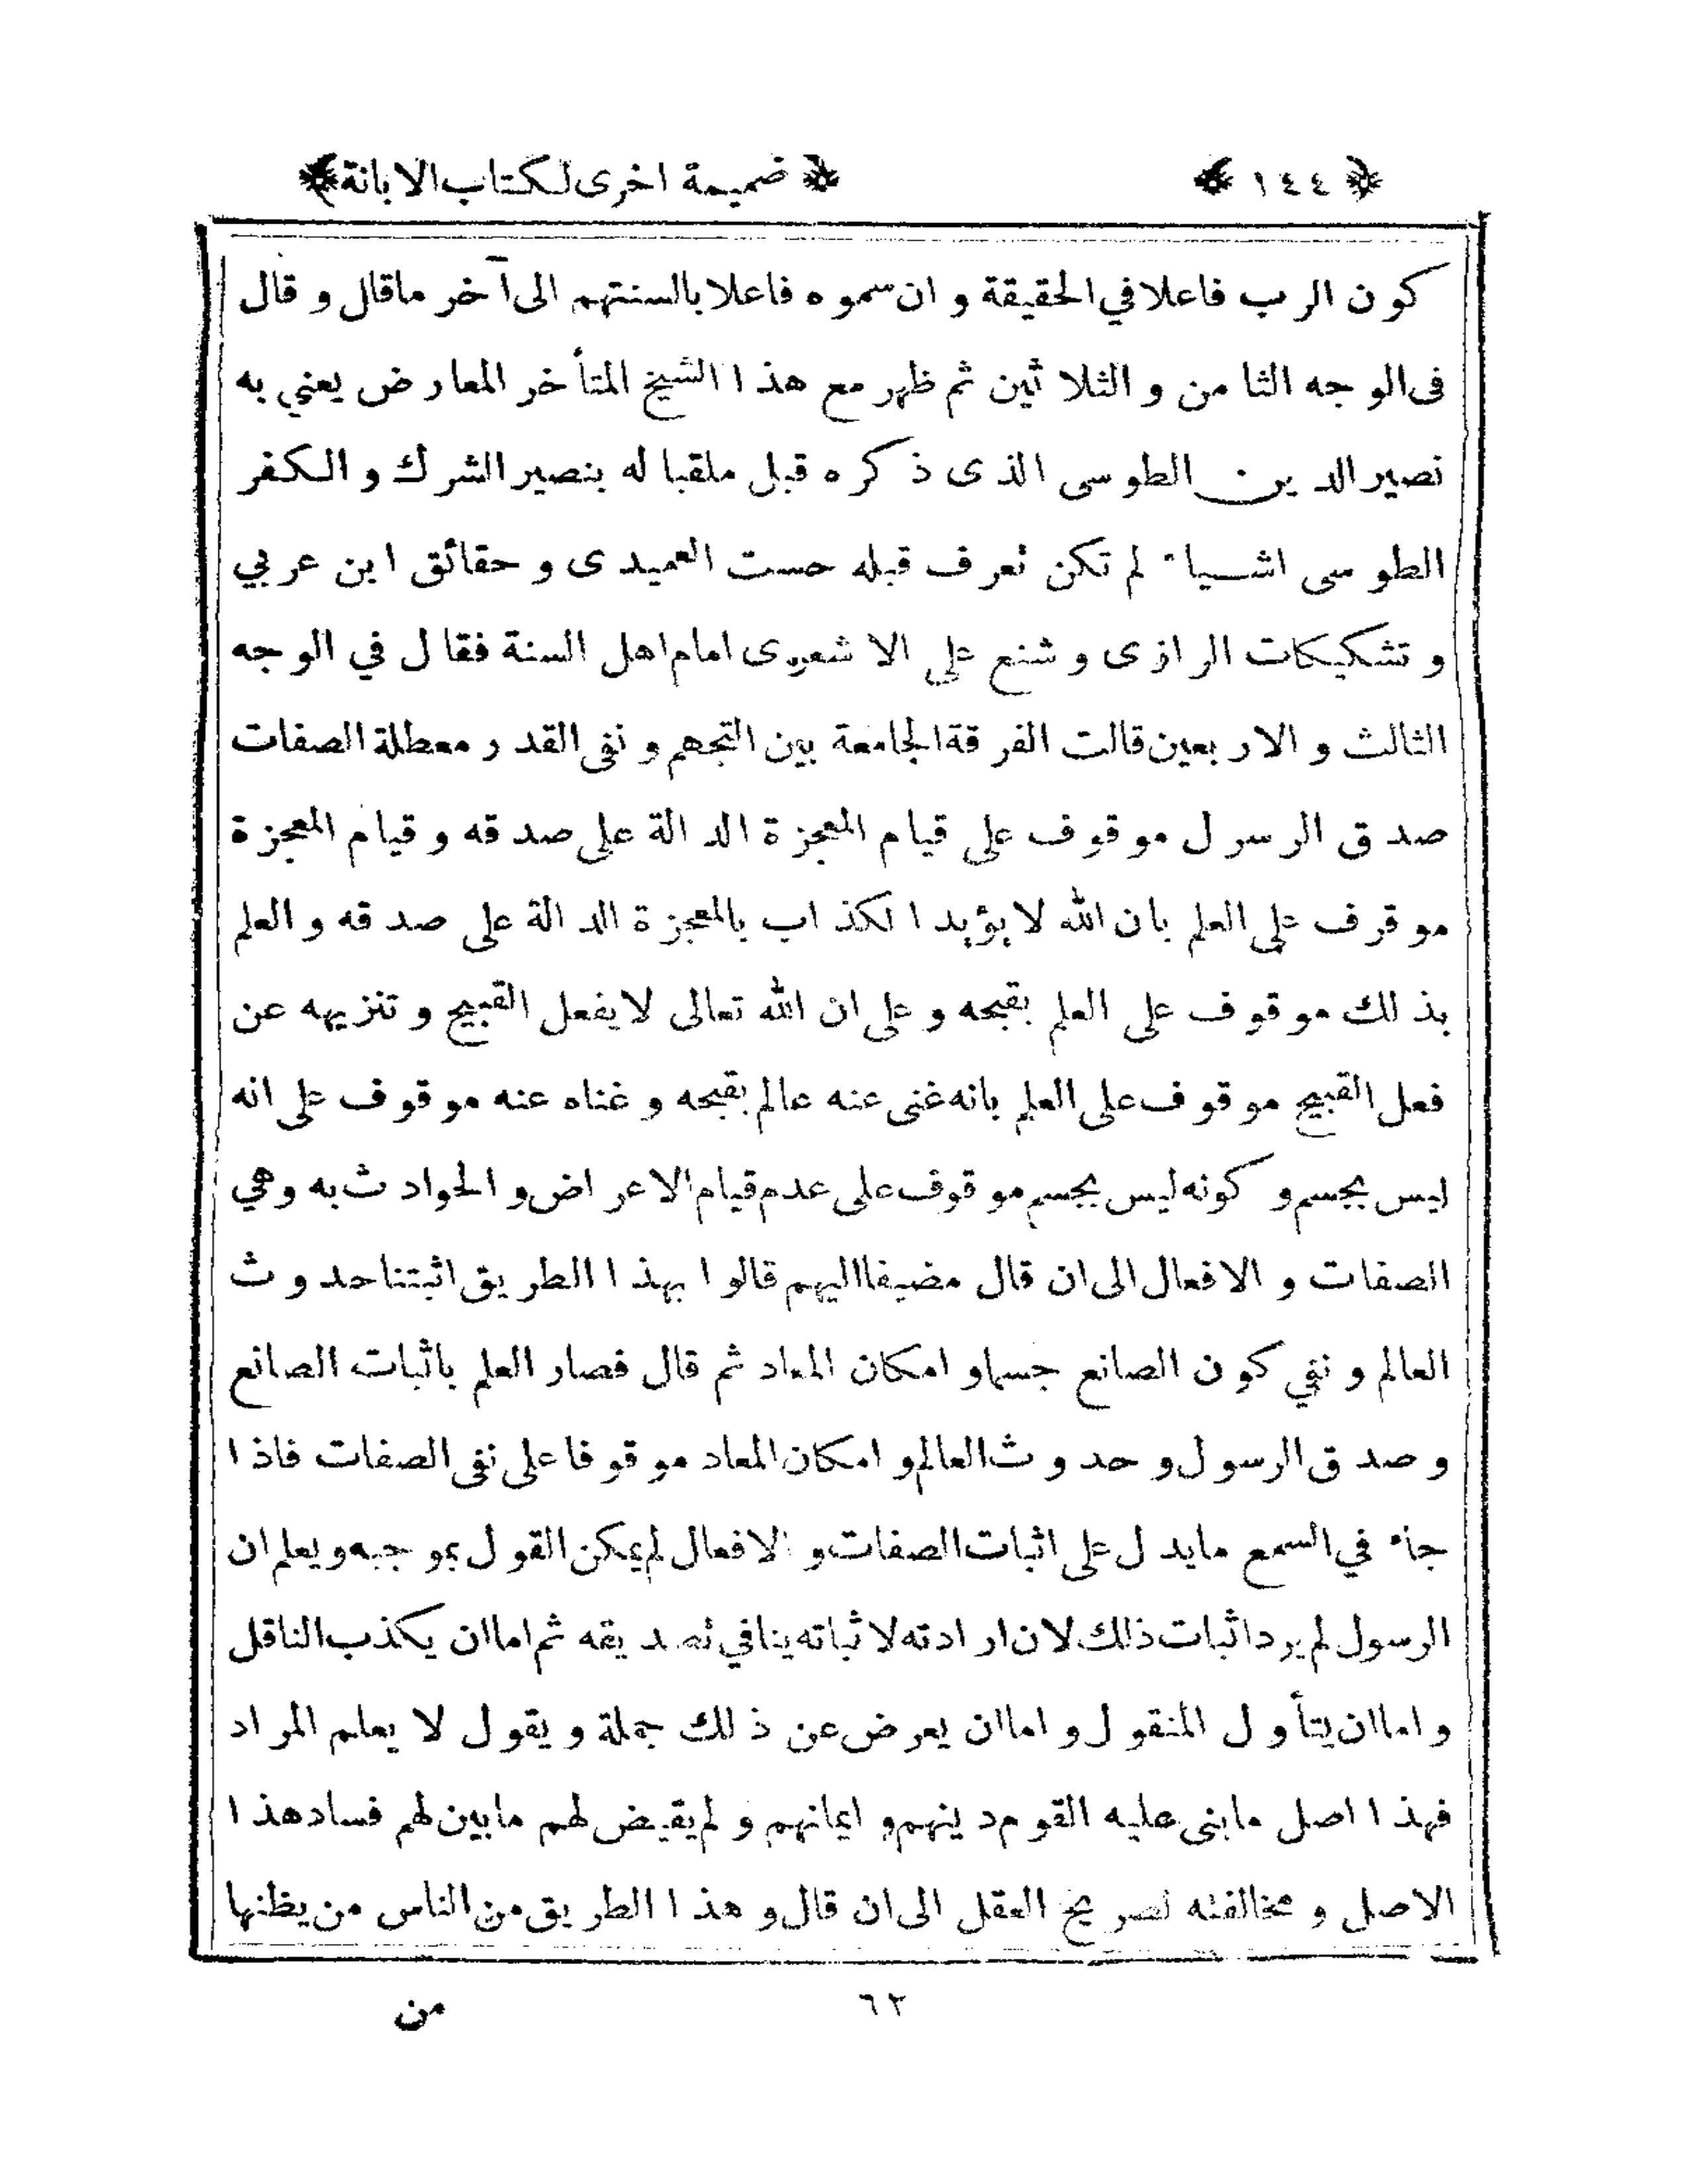 ﴿ ١٤٤ ﴾ ﴿ ضميمة اخرى لكتاب الابانة ﴾
كون الرب فاعلا في الحقيقة و ان سموه فاعلا بالسنتهم الى آخر ماقال و قال
فى الوجه الثامن و الثلاثين ثم ظهر مع هذا الشيخ المتأخر المعارض يعني به
نصير الدين الطوسى الذى ذكره قبل ملقبا له بنصير الشرك و الكفر
الطوسى اشياء لم تكن تعرف قبله حست العميدى و حقائق ابن عربي
و تشكيكات الرازى و شنع على الاشعرى امام اهل السنة فقال في الوجه
الثالث و الاربعين قالت الفرقة الجامعة بين التجهم و نفى القدر معطلة الصفات
صدق الرسول موقوف على قيام المعجزة الدالة على صدقه و قيام المعجزة
موقرف على العلم بان الله لا يؤيد الكذاب بالمعجزة الدالة على صدقه و العلم
بذلك موقوف على العلم بقبحه و على ان الله تعالى لا يفعل القبيح و تنزيهه عن
فعل القبيح موقوف على العلم بانه غنى عنه عالم بقبحه و غناه عنه موقوف على انه
ليس بجسم و كونه ليس بجسم موقوف على عدم قيام الاعراض و الحوادث به وهي
الصفات و الافعال الى ان قال مضيفا اليهم قالوا بهذا الطريق اثبتنا حدوث
العالم و نفي كون الصانع جسما و امكان المعاد ثم قال فصار العلم باثبات الصانع
و صدق الرسول و حدوث العالم و امكان المعاد موقوفا على نفى الصفات فاذا
جاء في السمع مايدل على اثبات الصفات و الافعال لم يمكن القول بموجبه و يعلم ان
الرسول لم يرد اثبات ذلك لان ارادته لاثباته ينافي تصديقه ثم اما ان يكذب الناقل
و اما ان يتأول المنقول و اما ان يعرض عن ذلك جملة و يقول لا يعلم المراد
فهذا اصل مابنى عليه القوم دينهم و ايمانهم و لم يقيض لهم مابين لهم فساد هذا
الاصل و مخالفته لصريح العقل الى ان قال و هذا الطريق من الناس من يظنها
٦٢ من